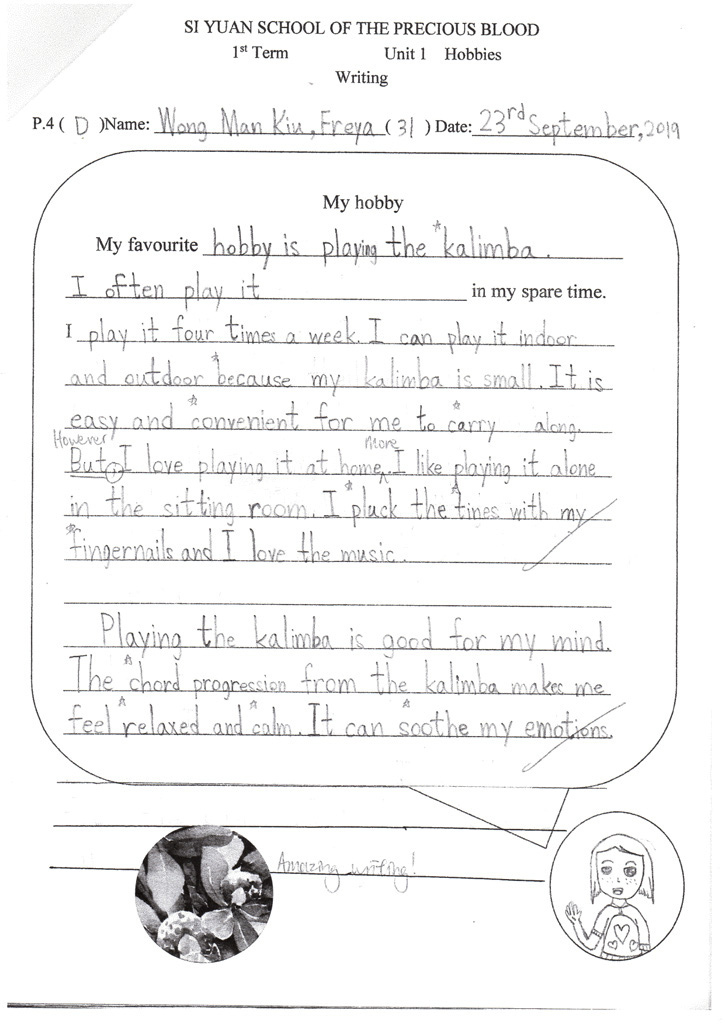 SI YUAN SCHOOL OF THE PRECIOUS BLOOD
1st Term Unit 1 Hobbies
Writing
P.4 ( D ) Name: Wong Man Kiu, Freya ( 31 ) Date: 23rd September, 2019
My hobby
My favourite hobby is playing the kalimba.
I often play it in my spare time.
I play it four times a week. I can play it indoor
and outdoor because my kalimba is small. It is
easy and convenient for me to carry along.
However More
But, I love playing it at home. I like playing it alone
in the sitting room. I pluck the tines with my
fingernails and I love the music.
Playing the kalimba is good for my mind.
The chord progression from the kalimba makes me
feel relaxed and calm. It can soothe my emotions.
Amazing writing!